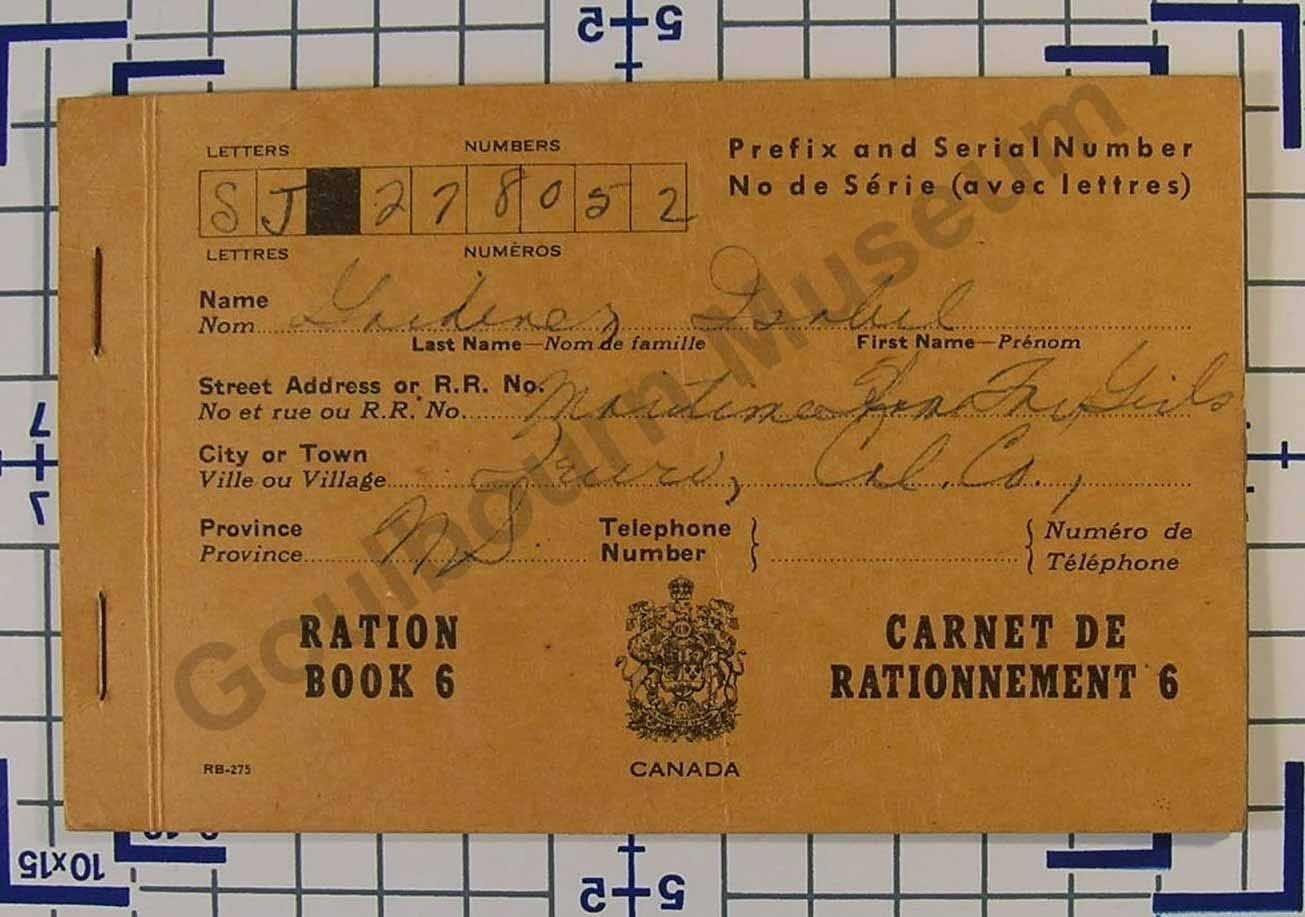 5 2
LETTERS NUMBERS
Prefix and Serial Number
No de Série (avec lettres)
S J 2 7 8 0 5 2
LETTRES NUMÉROS
Name
Nom Isabel
Last Name—Nom de famille First Name—Prénom
Street Address or R.R. No.
No et rue ou R.R. No. Maritime Home For Girls
City or Town
Ville ou Village Truro, Col. Co.,
Province Telephone Numéro de
Province N.S. Number Téléphone
RATION CARNET DE
BOOK 6 RATIONNEMENT 6
RB-275
CANADA
Goulbourn Museum
7
7
10x15
5 2